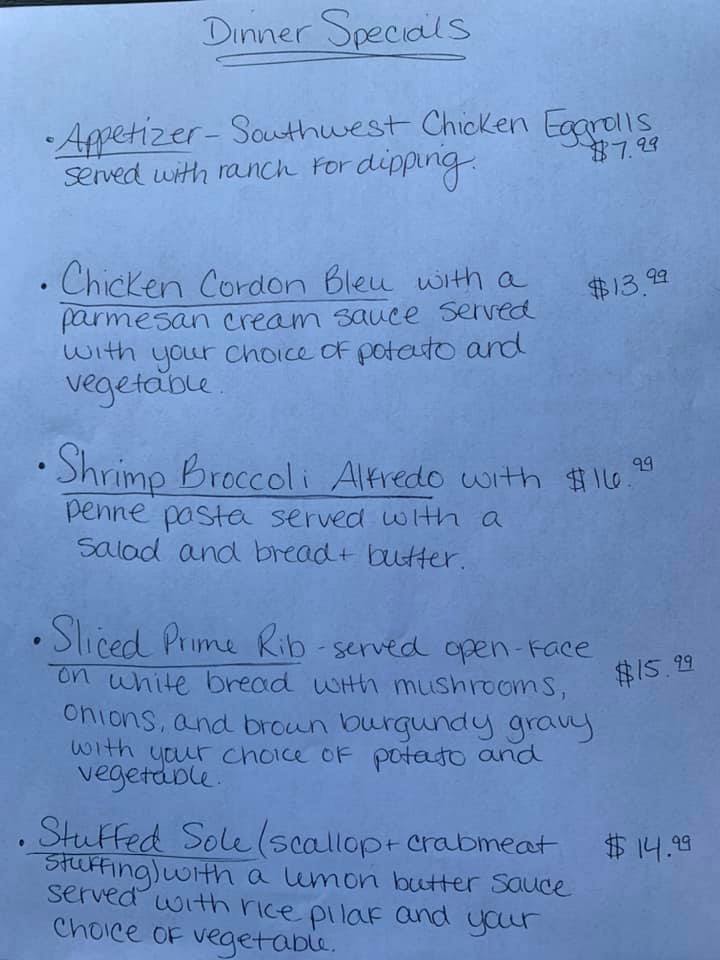 Dinner Specials
• Appetizer - Southwest Chicken Eggrolls
served with ranch for dipping. $7.99
• Chicken Cordon Bleu with a $13.99
parmesan cream sauce served
with your choice of potato and
vegetable.
• Shrimp Broccoli Alfredo with $16.99
penne pasta served with a
salad and bread + butter.
• Sliced Prime Rib - served open-face
on white bread with mushrooms, $15.99
onions, and brown burgundy gravy
with your choice of potato and
vegetable.
• Stuffed Sole (scallop + crabmeat $14.99
stuffing) with a lemon butter sauce
served with rice pilaf and your
choice of vegetable.